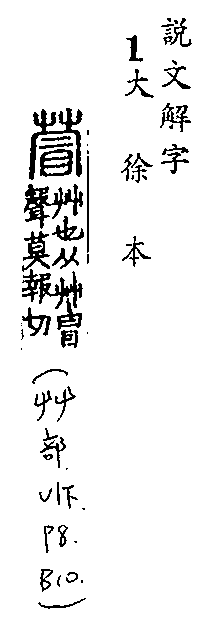 說文解字
1大徐本
萺
艸也从艸冒
聲莫報切
(艸部.V1下.P8.B10.)